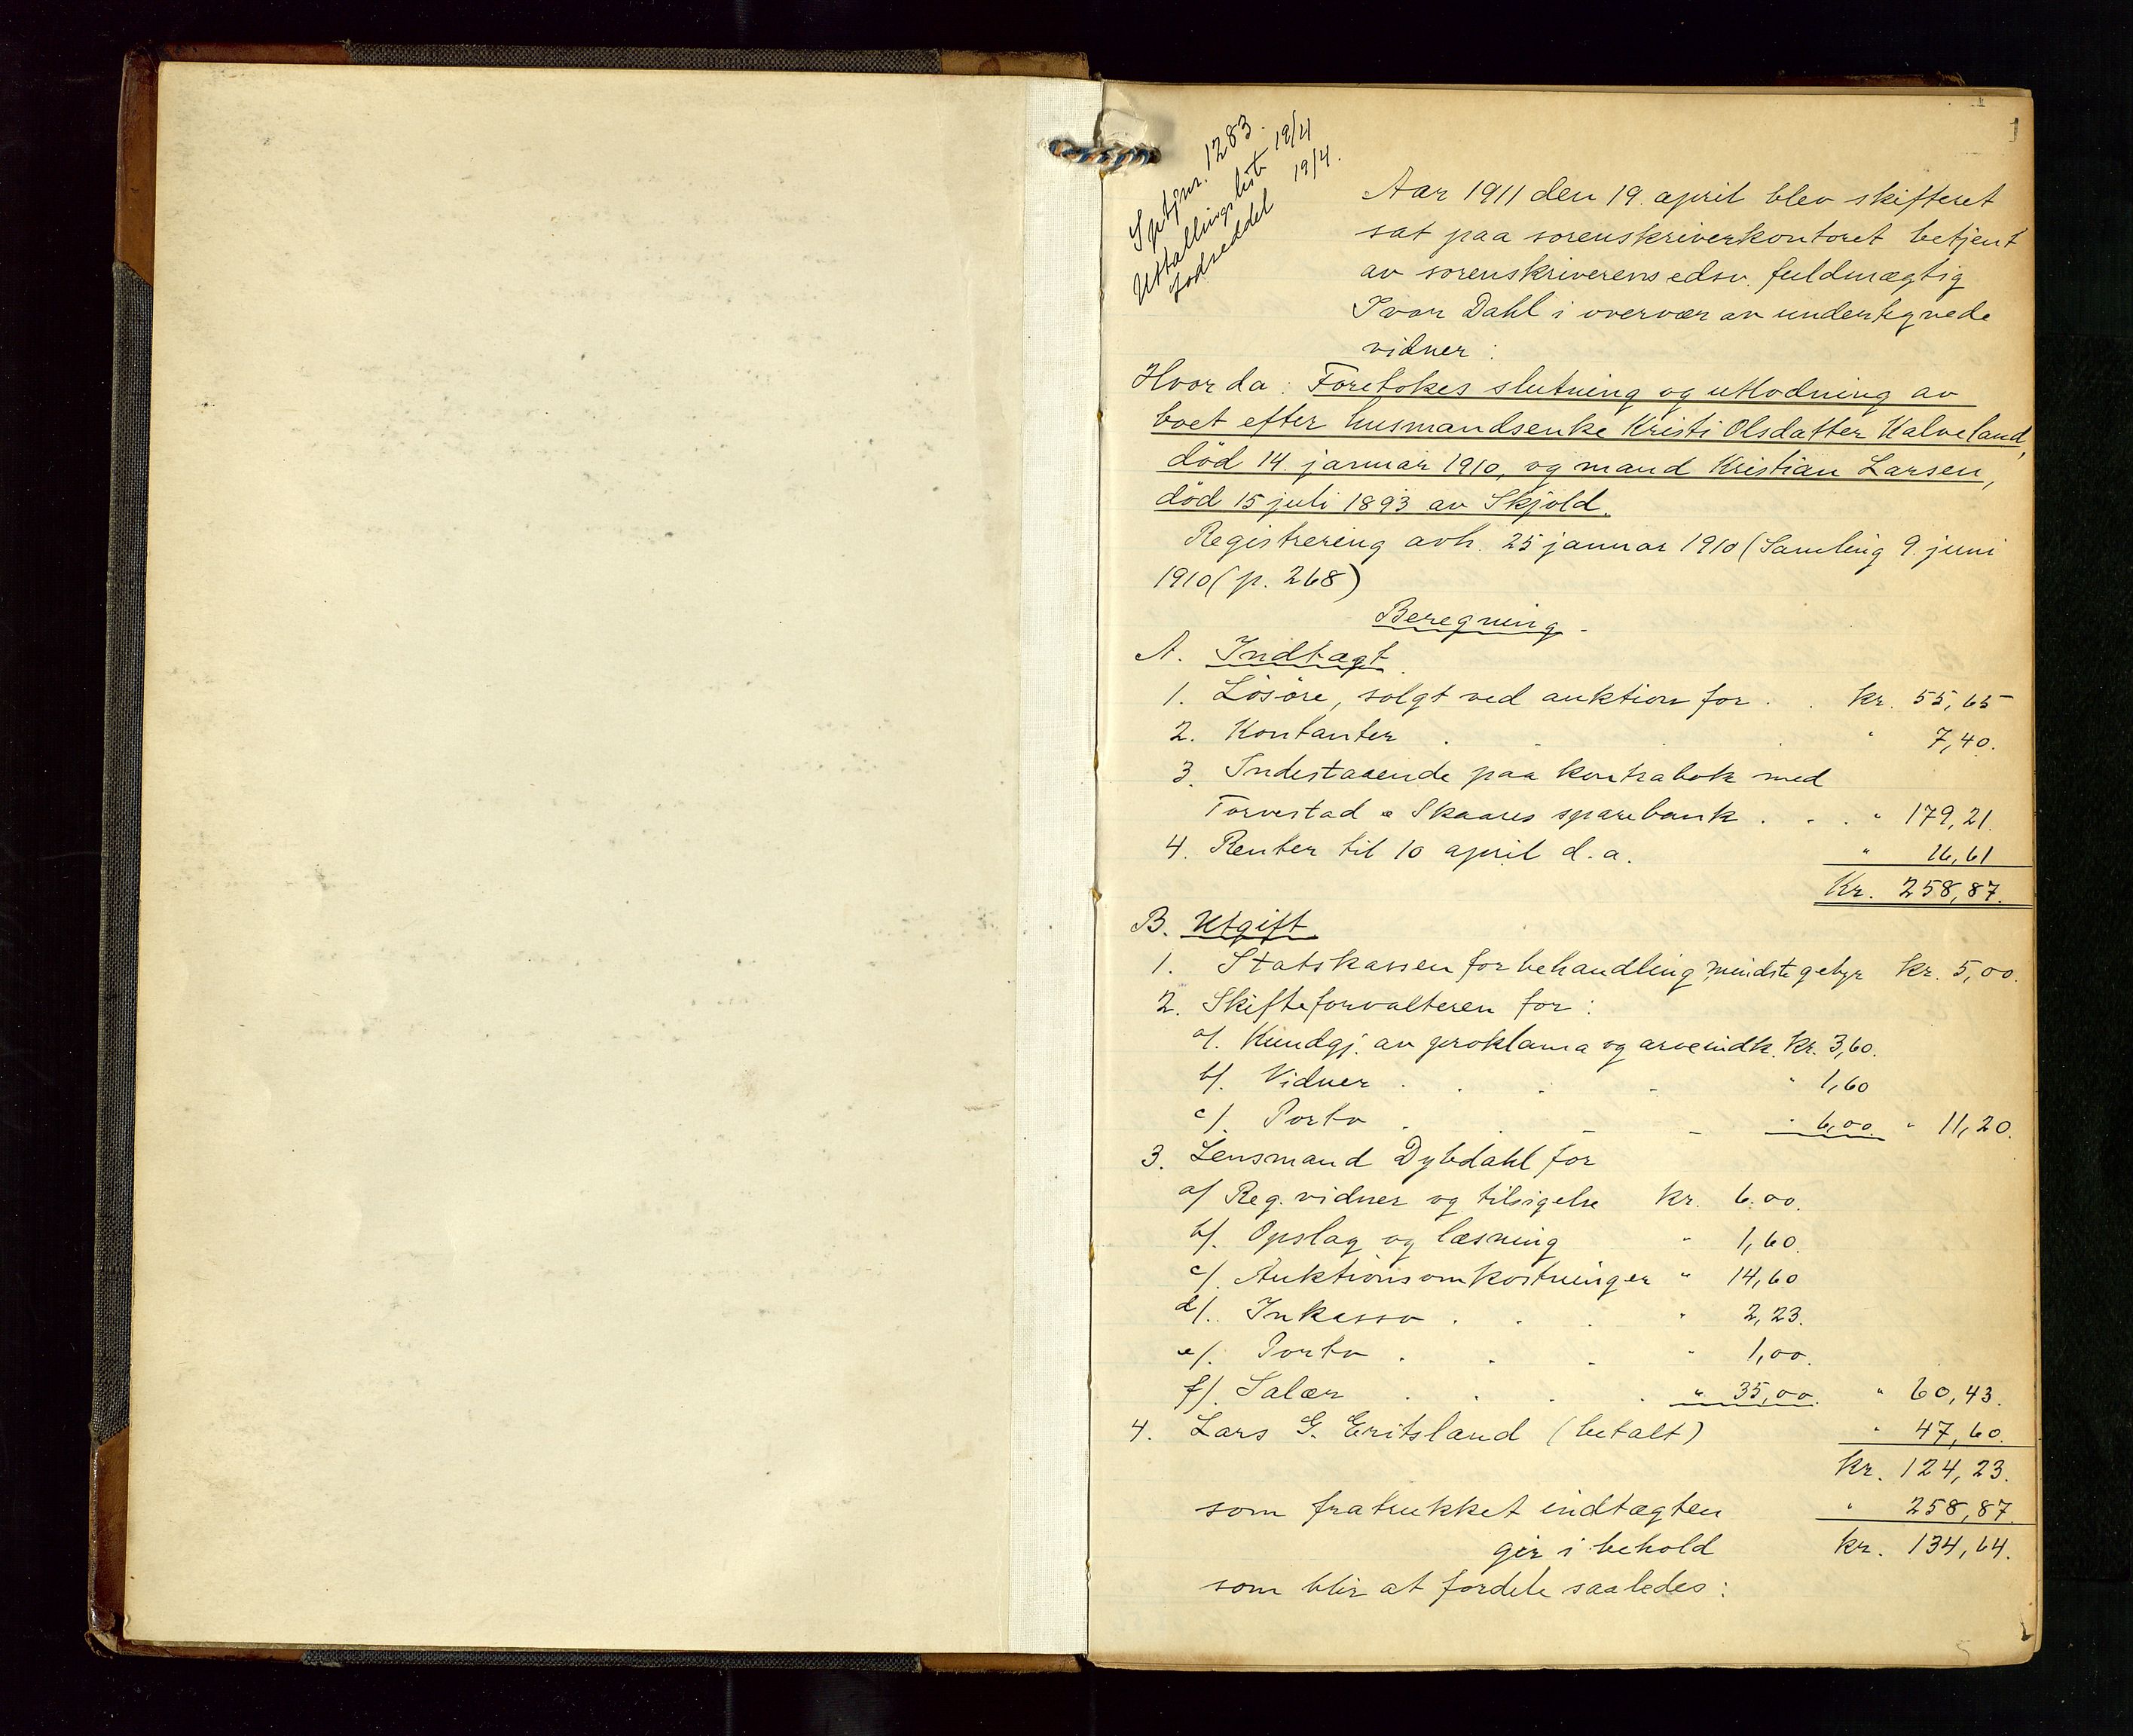 1
Sptjnr. 1283.
Uttallingsliste 19/4
Lodseddel 19/4.
Aar 1911 den 19. april blev skifteret
sat paa sorenskriverkontoret betjent
av sorenskriverens edsv. fuldmægtig
Ivar Dahl i overvær av undertegnede
vidner:
Hvorda: Foretokes slutning og utlodning av
boet efter husmandsenke Kristi Olsdatter Kalveland,
död 14. januar 1910, og mand Kristian Larsen,
död 15 juli 1893 av Skjold.
Registrering avh. 25 januar 1910 (Samling 9. juni
1910 (p. 268)
Beregning.
A. Indtægt.
1. Lösöre, solgt ved auktion for . . Kr. 55,65
2. Kontanter . . . . " 7,40.
3. Indestaaende paa kontrabok med
Torvestad & Skaares sparebank . . . " 179,21.
4. Renter til 10 april d. a. " 16,61
Kr. 258,87.
B. Utgift.
1. Statskassen for behandling, mindste gebyr Kr. 5,00.
2. Skifteforvalteren for:
a/. Kundgj. av proklama og arveindk. Kr. 3,60.
b/. Vidner . . . . " 1,60
c/. Porto . . . . " 6,00. " 11,20.
3. Lensmand Dybdahl for
a/ Reg. vidner og tilsigelse Kr. 6.00.
b/. Opslag og læsning " 1,60.
c/. Auktionsomkostninger " 14,60
d/. Inkasso . . . " 2,23.
e/. Porto . . . " 1,00.
f/. Salær . . . . " 35,00. " 60,43.
4. Lars G. Eritsland (betalt) " 47,60.
Kr. 124,23.
som fratrukket indtægten " 258,87.
gir i behold Kr. 134,64.
som blir at fordele saaledes: